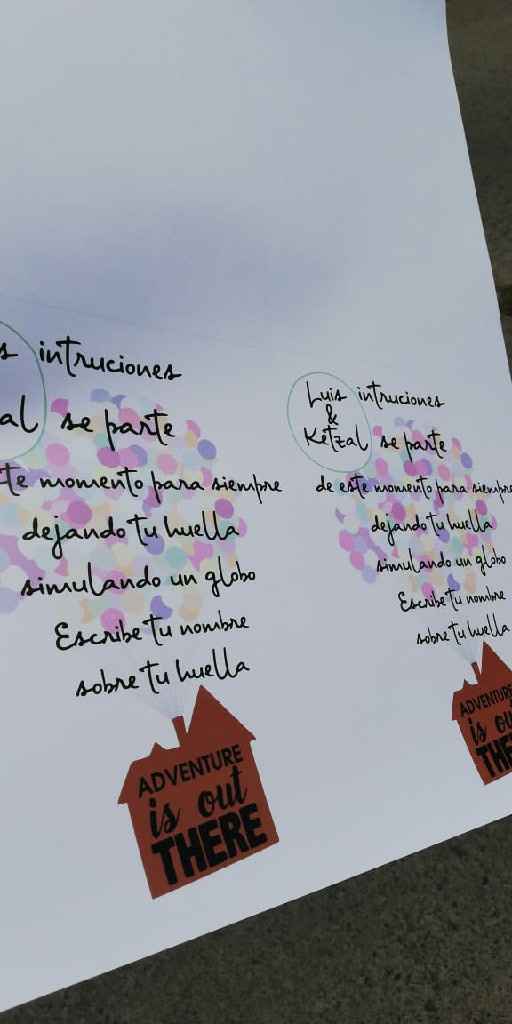 intruciones
se parte
momento para siempre
dejando tu huella
simulando un globo
Escribe tu nombre
sobre tu huella
ADVENTURE
is out
THERE
Luis
&
Kétzal
intruciones
se parte
de este momento para siempre
dejando tu huella
simulando un globo
Escribe tu nombre
sobre tu huella
ADVENTURE
is